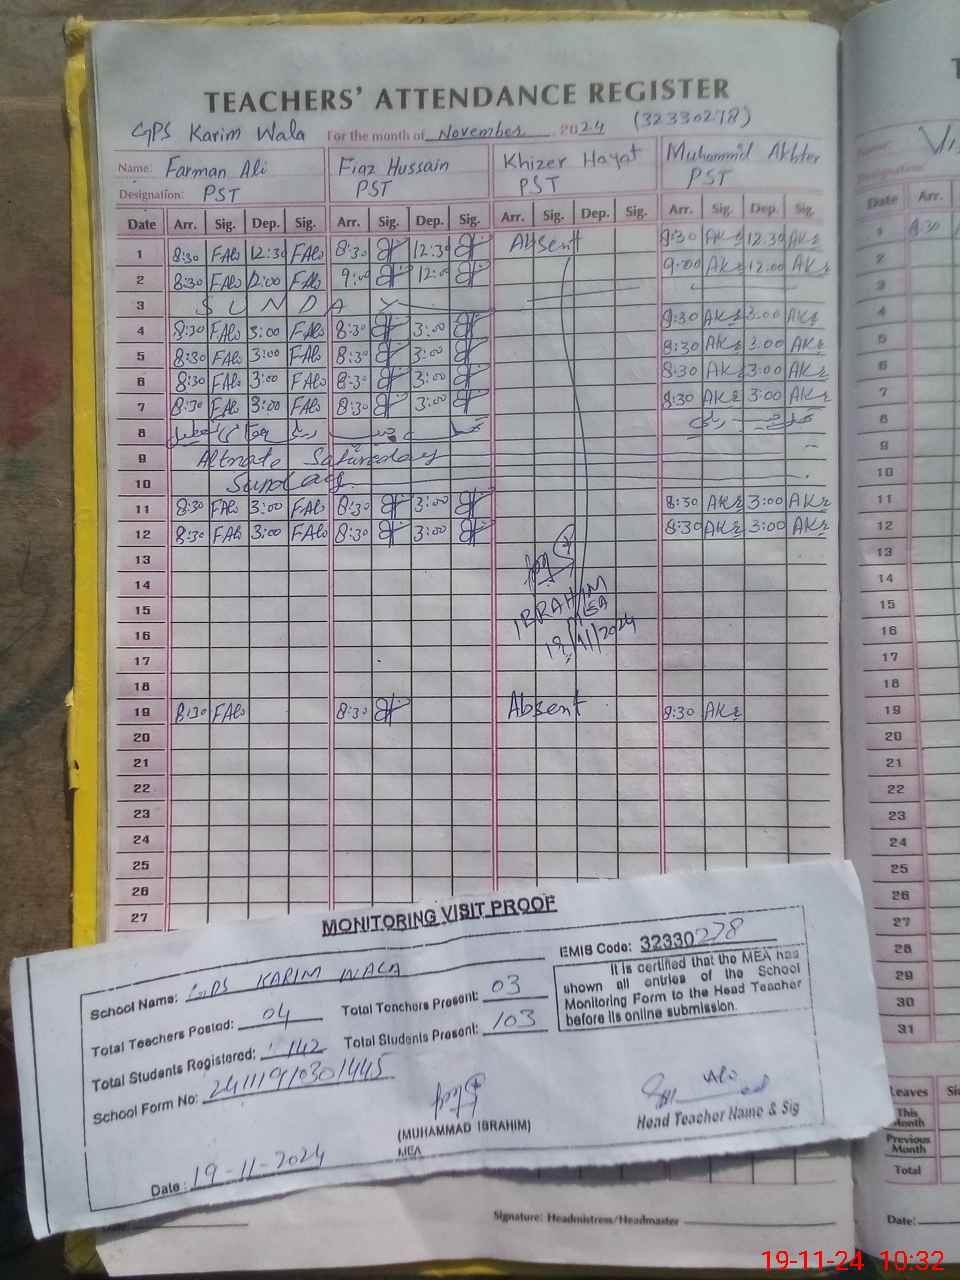 TEACHERS' ATTENDANCE REGISTER
GPS Karim Wala For the month of November 2024 (32330278)
Name: Farman Ali Fiaz Hussain Khizer Hayat Muhammid Akhter
Designation: PST PST PST PST
Date Arr. Sig. Dep. Sig. Arr. Sig. Dep. Sig. Arr. Sig. Dep. Sig. Arr. Sig. Dep. Sig.
1 8:30 FAli 12:30 FAli 8:30 12:30 Absent 8:30 AKr 12.30 AKr
2 8:30 FAli 12:00 FAli 9:00 12:00 9:00 AKr 12.00 AKr
3 SUNDAY
4 8:30 FAli 3:00 FAli 8:30 3:00 8:30 AKr 3:00 AKr
5 8:30 FAli 3:00 FAli 8:30 3:00 8:30 AKr 3.00 AKr
6 8:30 FAli 3:00 FAli 8:30 3:00 8:30 AKr 3:00 AKr
7 8:30 FAli 3:00 FAli 8:30 3:00 8:30 AKr 3:00 AKr
8
9 Altrnate Satureday
10 Sunday
11 8:30 FAli 3:00 FAli 8:30 3:00 8:30 AKr 3:00 AKr
12 8:30 FAli 3:00 FAli 8:30 3:00 8:30 AKr 3:00 AKr
13
14
15 IBRAHIM
MEA
16 19/11/2024
17
18
19 8:30 FAli 8:30 Absent 8:30 AKr
20
21
22
23
24
25
26
27
MONITORING VISIT PROOF
School Name: GPS KARIM WALA EMIS Code: 32330278
Total Teachers Posted: 04 Total Teachers Present: 03
Total Students Registered: 142 Total Students Present: 103
School Form No: 24111910301445
It is certified that the MEA has
shown all entries of the School
Monitoring Form to the Head Teacher
before its online submission.
(MUHAMMAD IBRAHIM)
MEA
Head Teacher Name & Sig
Date: 19-11-2024
Signature: Headmistress/Headmaster
Date Arr.
1 8.30
2
3
4
5
6
7
8
9
10
11
12
13
14
15
16
17
18
19
20
21
22
23
24
25
26
27
28
29
30
31
Leaves
This Month
Previous Month
Total
Date:
19-11-24 10:32